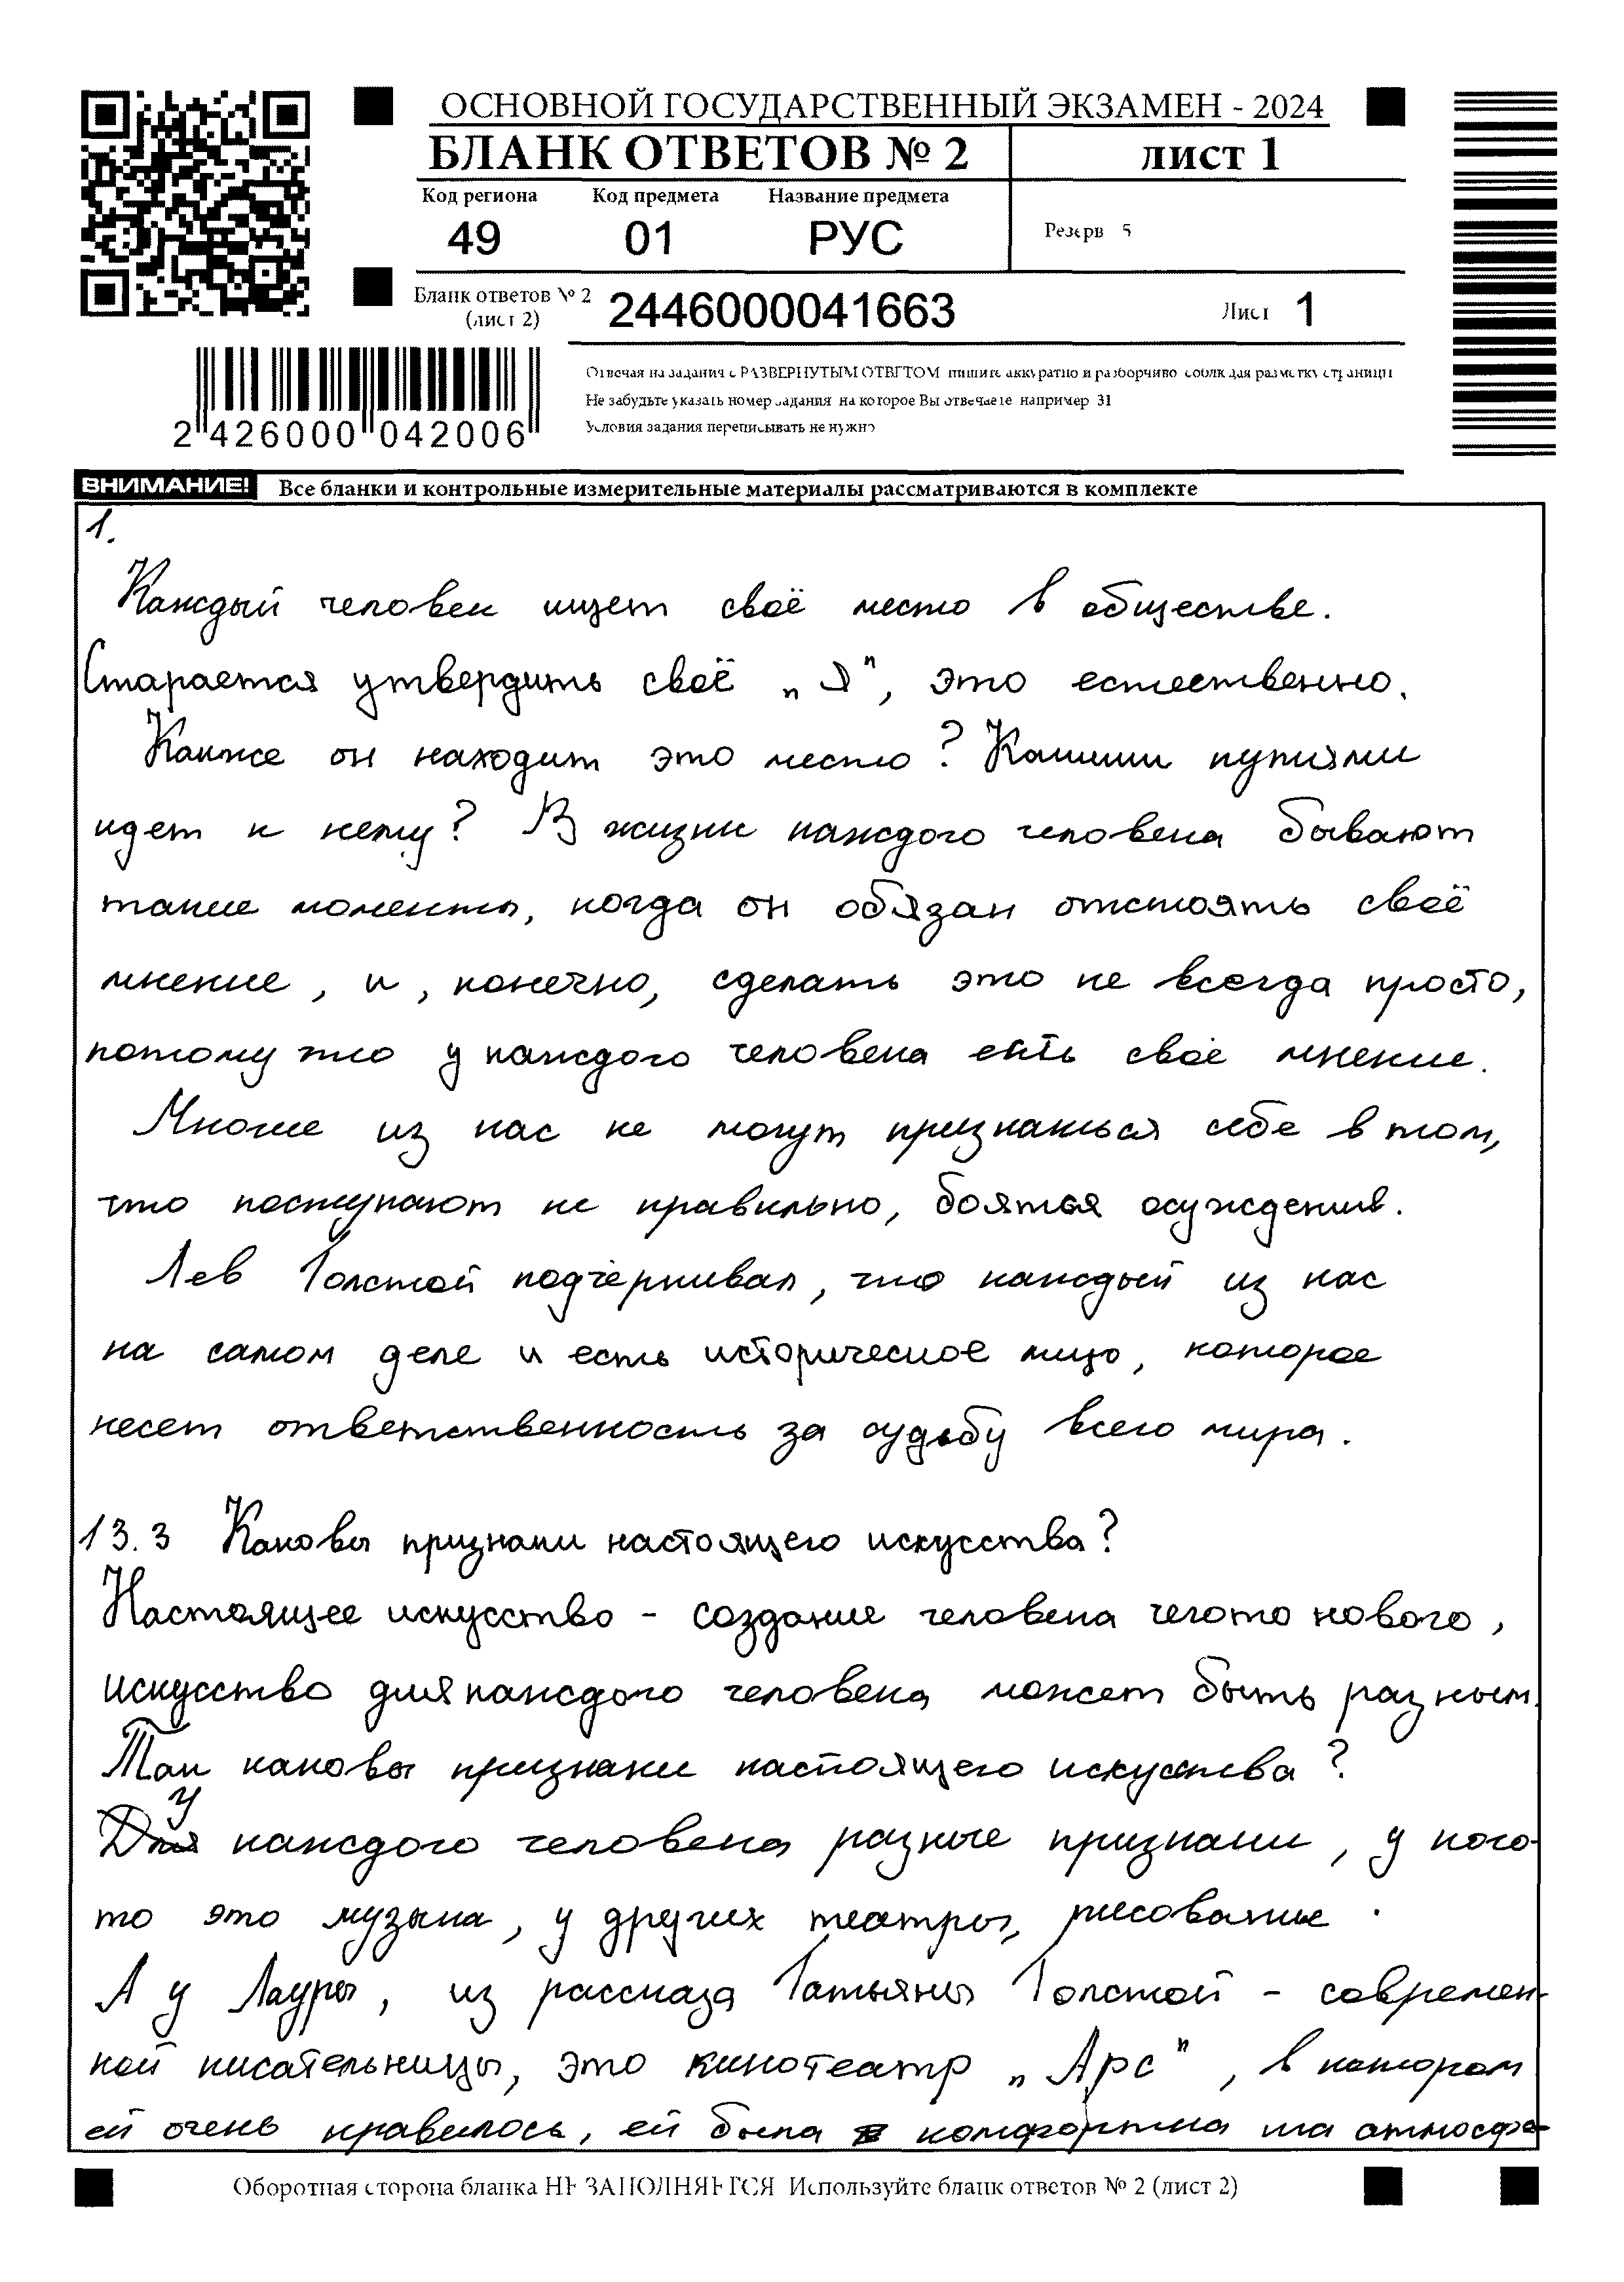 ОСНОВНОЙ ГОСУДАРСТВЕННЫЙ ЭКЗАМЕН - 2024
БЛАНК ОТВЕТОВ № 2
лист 1
Код региона Код предмета Название предмета
49 01 РУС
Резерв 5
Бланк ответов № 2
(лист 2)
2446000041663
Лист 1
2 426000 042006
Отвечая на задания с РАЗВЕРНУТЫМ ОТВЕТОМ пишите аккуратно и разборчиво соблюдая разметку страницы
Не забудьте указать номер задания на которое Вы отвечаете например 31
Условия задания переписывать не нужно
ВНИМАНИЕ! Все бланки и контрольные измерительные материалы рассматриваются в комплекте
1.
Каждый человек ищет своё место в обществе.
Старается утвердить своё „Я", это естественно.
Какже он находит это место? Какими путями
идет к нему? В жизни каждого человека бывают
такие моменты, когда он обязан отстоять своё
мнение, и, конечно, сделать это не всегда просто,
потому что у каждого человека есть своё мнение.
Многие из нас не могут признаться себе в том,
что поступают не правильно, боятся осуждения.
Лев Толстой подчёркивал, что каждый из нас
на самом деле и есть историческое лицо, которое
несет ответственность за судьбу всего мира.
13.3 Каковы признаки настоящего искусства?
Настоящее искусство - создание человека чегото нового,
искусство для каждого человека может быть разным.
Так каковы признаки настоящего искусства?
У каждого человека разные признаки, у кого-
то это музыка, у других театры, рисование.
А у Лауры, из рассказа Татьяны Толстой - современ-
ной писательницы, это кинотеатр „Арс", в котором
ей очень нравилось, ей была комфортна та атмосфе-
Оборотная сторона бланка НЕ ЗАПОЛНЯЕТСЯ Используйте бланк ответов № 2 (лист 2)